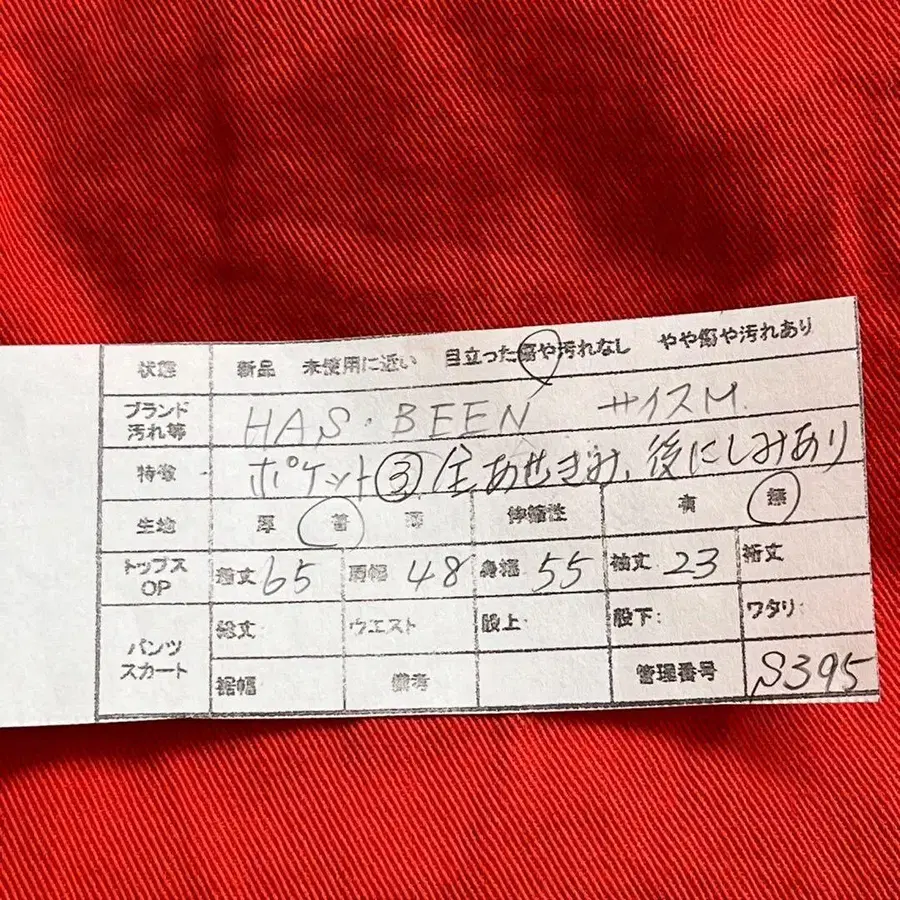 状態 新品 未使用に近い 目立った傷や汚れなし やや傷や汚れあり
ブランド 汚れ等 HAS・BEEN サイズM.
特徴 ポケット③ 全あせぎみ、後にしみあり
生地 厚 普 薄 伸縮性 有 無
トップス OP 着丈 65 肩幅 48 身幅 55 袖丈 23 裄丈
パンツ スカート 総丈: ウエスト 股上: 股下: ワタリ:
裾幅 備考 管理番号 S395